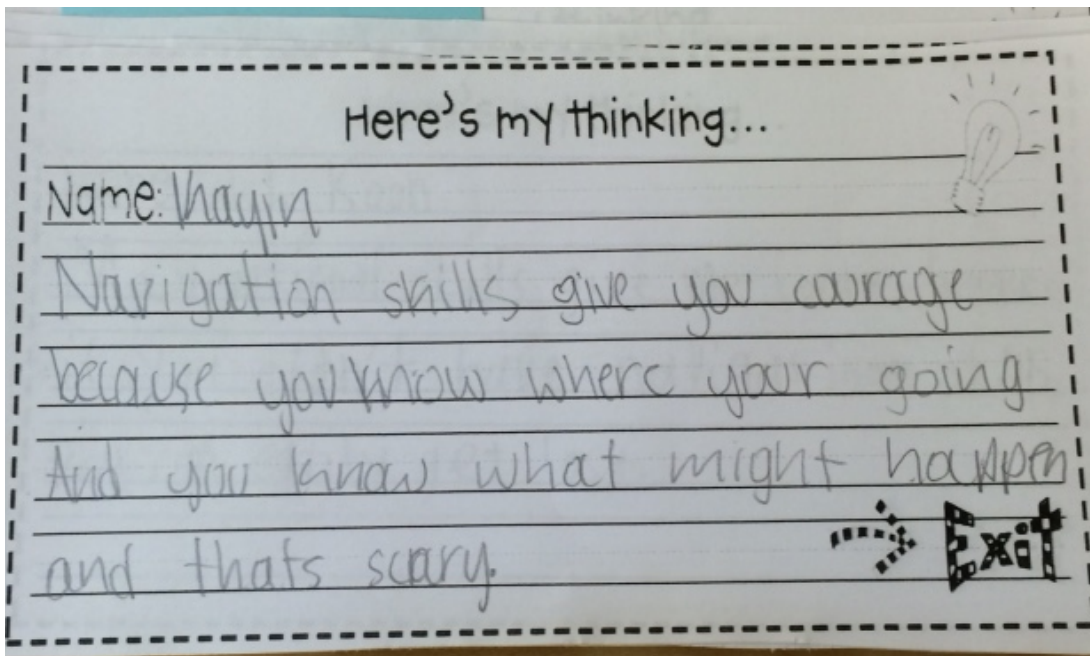 Here's my thinking...
Name: Khayin
Navigation skills give you courage
because you know where your going
And you know what might happen
and thats scary.
Exit